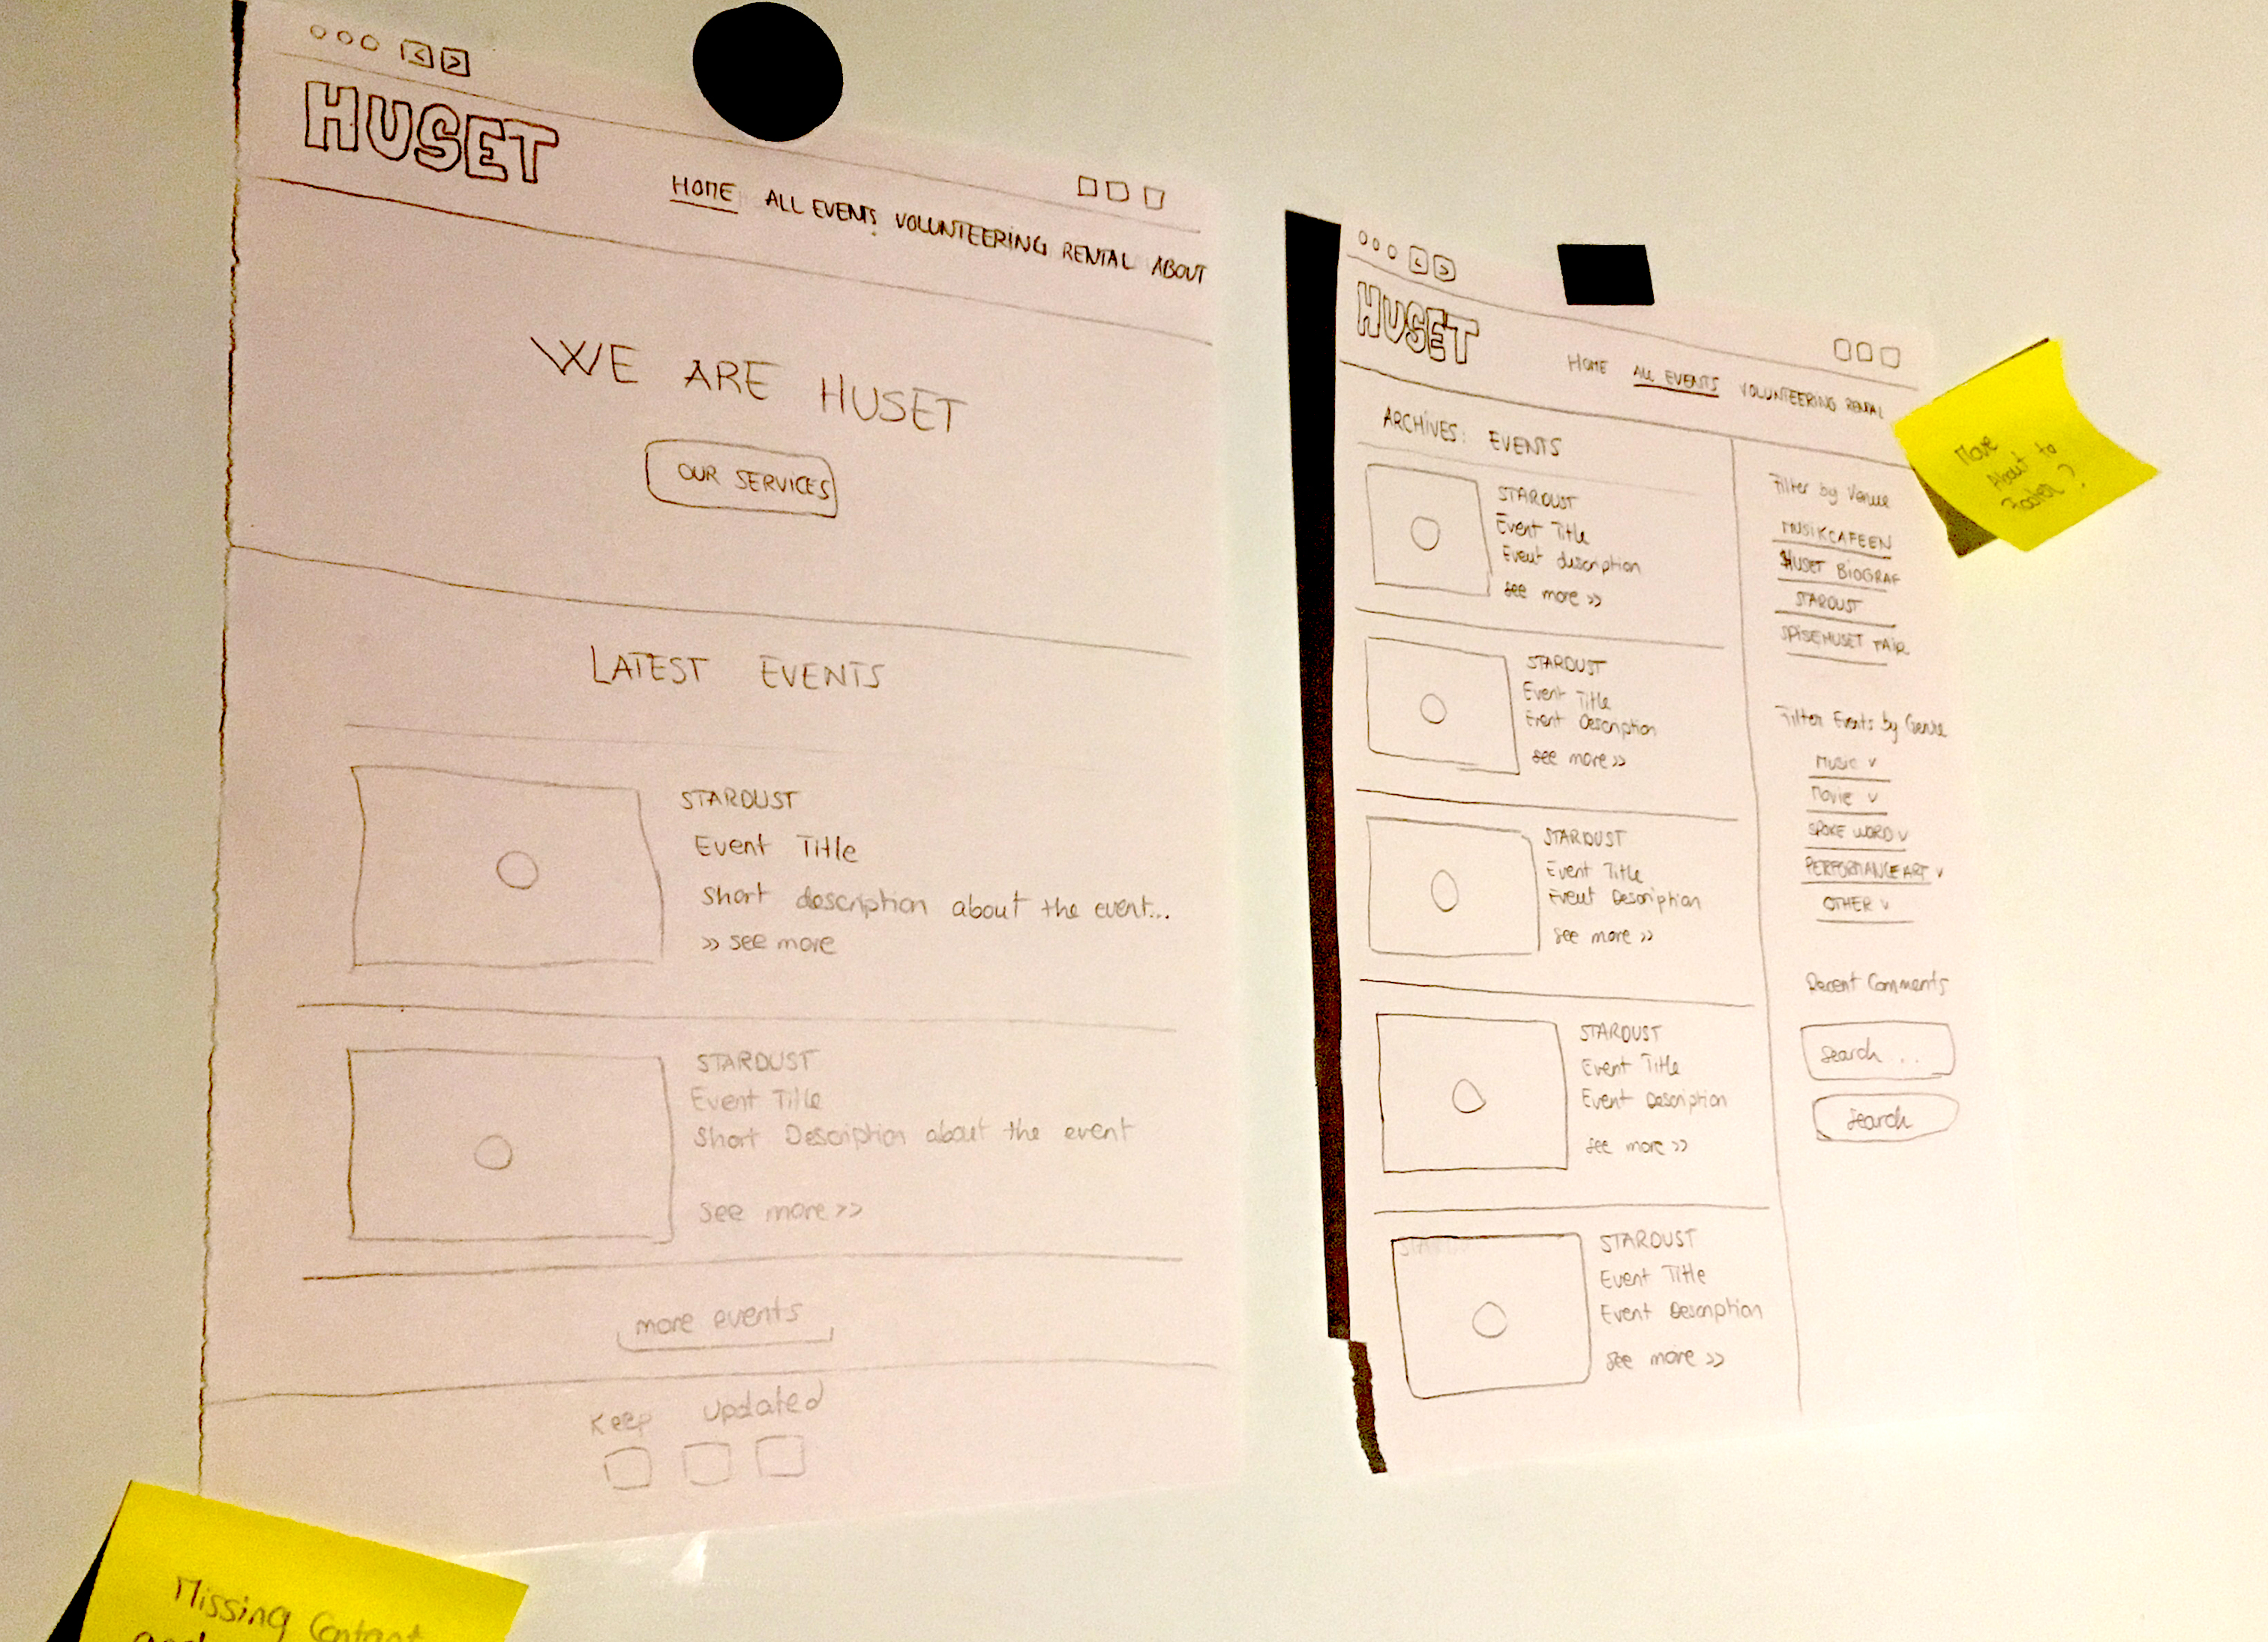 HUSET
HOME ALL EVENTS VOLUNTEERING RENTAL ABOUT
WE ARE HUSET
OUR SERVICES
LATEST EVENTS
STARDUST
Event Title
Short description about the event...
>> see more
STARDUST
Event Title
Short Description about the event
See more >>
more events
Keep Updated
Missing Content
HUSET
HOME ALL EVENTS VOLUNTEERING RENTAL
ARCHIVES: EVENTS
STARDUST
Event Title
Event description
See more >>
STARDUST
Event Title
Event Description
See more >>
STARDUST
Event Title
Event Description
See more >>
STARDUST
Event Title
Event Description
See more >>
STARDUST
Event Title
Event Description
See more >>
Filter by Venue
MUSIKCAFEEN
HUSET BIOGRAF
STARDUST
SPISEHUSET
Filter Events by Genre
Music v
Movie v
SPOKE WORD v
PERFORMANCE ART v
OTHER v
Recent Comments
Search ..
Search
Move
About to
Footer?